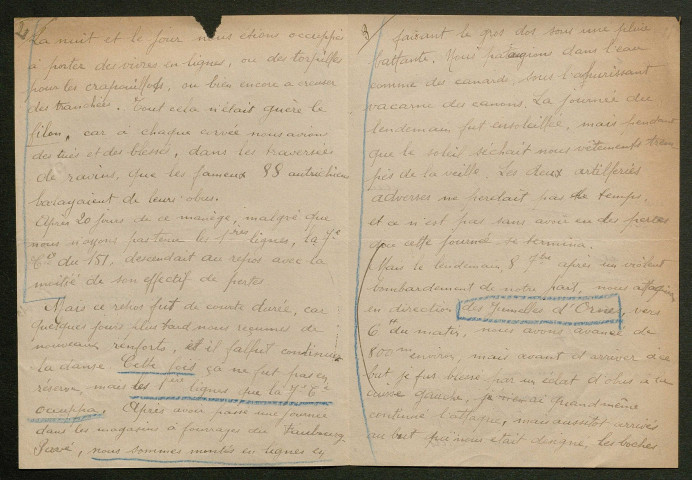 2
La nuit et le jour nous étions occupés
à porter des vivres en lignes, ou des torpilles
pour les crapouillots, ou bien encore a creuser
des tranchées. Tout cela n'était guère le
filon, car à chaque corvée nous avions
des tués et des blessés, dans les traversées
de ravins, que les fameux 88 autrichiens
barageaient de leurs obus.
Après 20 jours de ce manège, malgré que
nous n'ayons pas tenu les 1ères lignes, la 7e
Cie du 151, descendait au repos avec la
moitié de son effectif de pertes
Mais ce repos fut de courte durée, car
quelques jours plus tard nous reçumes de
nouveaux renforts, et il fallut continuer
la danse Cette fois ça ne fut pas en
réserve, mais des 1ères lignes que la 7e Cie
occuppa. Après avoir passé une journée
dans les magasins à fourrages du Faubourg
Pavé, nous sommes montés en lignes en
3
faisant le gros dos sous une pluie
battante. Nous pataugions dans l'eau
comme des canards, sous l'ahurissant
vacarme des canons. La journée du
lendemain fut ensoleillée, mais pendant
que le soleil séchait nous vêtements trem
pés de la veille. Les deux artilleries
adverses ne perdait pas de temps,
et ce n'est pas sans avoir eu des pertes
que cette journée se termina.
Mais le lendemain 8 7bre après un violent
bombardement de notre part, nous attaquions
en direction des Jumelles d'Ornes, vers
6h du matin, nous avons avancé de
800m environ, mais avant d'arriver à ce
but je fus blessé par un éclat d'obus à la
cuisse gauche, je suivai quand même
continué l'attaque, mais aussitot arrivés
au but qui nous était désigné, les boches